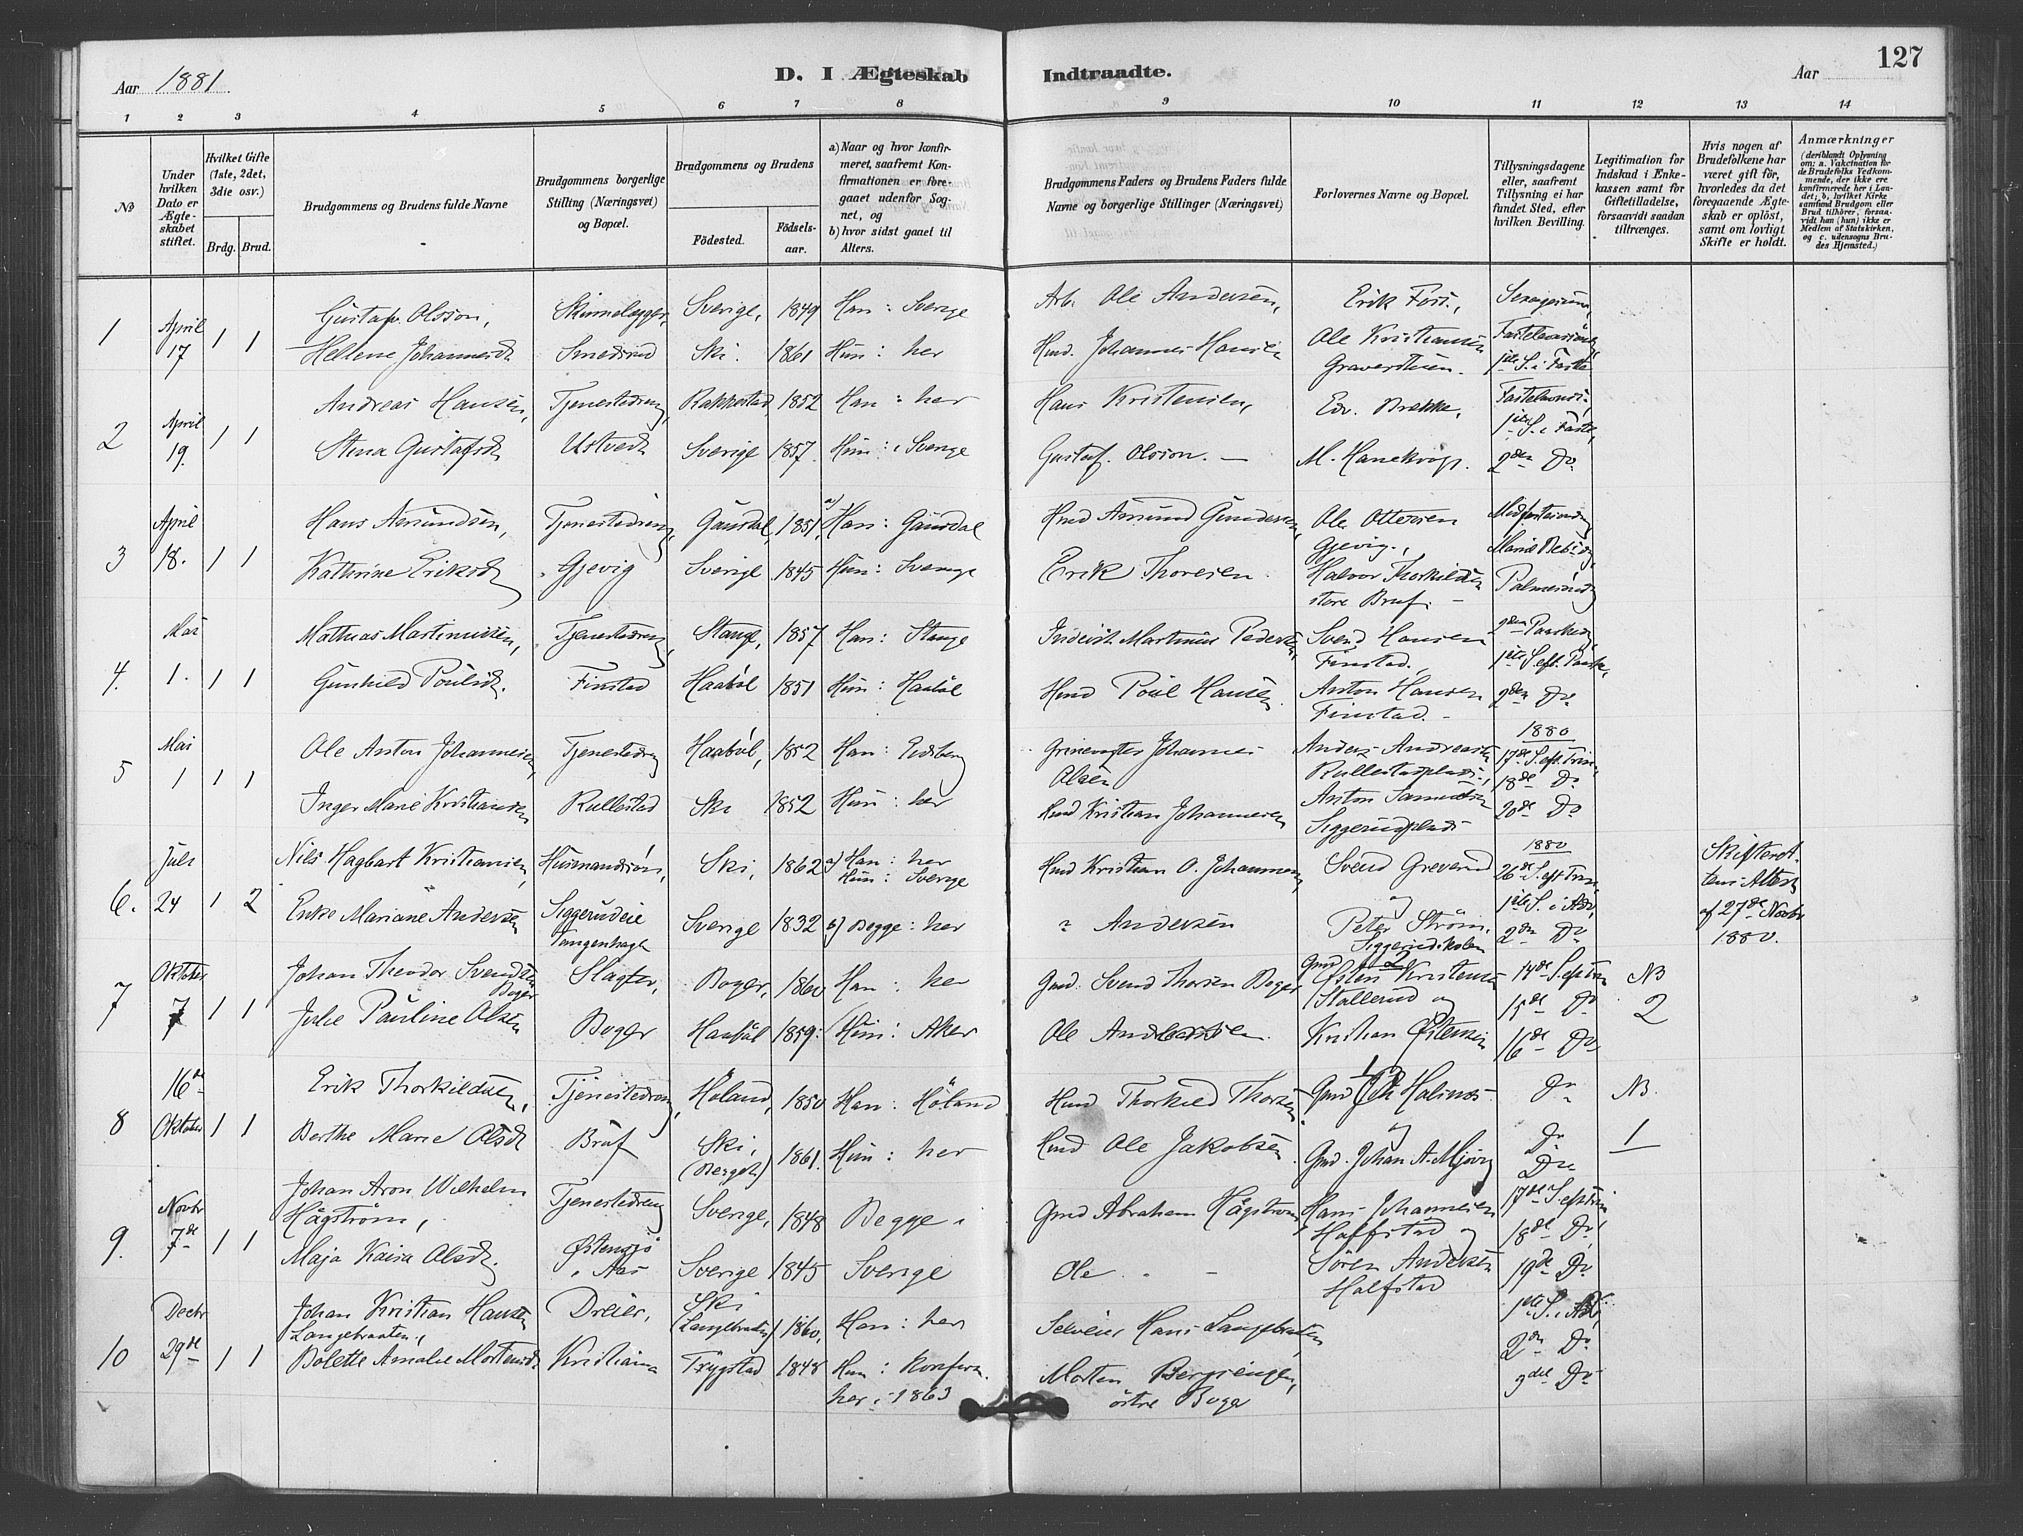 Aar 1881. D. I Ægteskab Indtraadte. Aar 127
1 2 3 4 5 6 7 8 9 10 11 12 13 14
№
Under hvilken Dato er Ægteskabet stiftet.
Hvilket Gifte (1ste, 2det, 3die osv.)
Brdg. Brud.
Brudgommens og Brudens fulde Navne
Brudgommens borgerlige Stilling (Næringsvei) og Bopæl.
Brudgommens og Brudens
Fødested. Fødselsaar.
a) Naar og hvor konfirmeret, saafremt Konfirmationen er foregaaet udenfor Sognet, og
b) hvor sidst gaaet til Alters.
Brudgommens Faders og Brudens Faders fulde Navne og borgerlige Stillinger (Næringsvei)
Forlovernes Navne og Bopæl.
Tillysningsdagene eller, saafremt Tillysning ei har fundet Sted, efter hvilken Bevilling.
Legitimation for Indskud i Enkekassen samt for Giftetilladelse, forsaavidt saadan tiltrænges.
Hvis nogen af Brudefolkene har været gift før, hvorledes da det foregaaende Ægteskab er opløst, samt om lovligt Skifte er holdt.
Anmærkninger
(deriblandt Oplysning om: a. Vakcination for de Brudefolks Vedkommende, der ikke ere konfirmerede her i Landet; b, hvilket Kirkesamfund Brudgom eller Brud tilhører, forsaavidt han (hun) ikke er Medlem af Statskirken, og c. udensogns Brudes Hjemsted.)
1 April 17 1 1 Gustav Olsson, Skinnelægger, Sverige, 1849 Han: Sverige Arb. Ole Andersen, Erik Foss, Sexagesima,
Hellene Johannesd. Smedsrud Ski. 1861 Hun: her Hmd. Johannes Hansen Ole Kristiansen Fastelavnsönd.
Graverstuen. 1ste S. i Faste
2 April 19. 1 1 Andreas Hansen, Tjenestedreng, Rakkestad 1852 Han: her Hans Kristensen, Edv. Brekke, Fastelavnss.,
1ste S. i Faste,
Stina Gustafsd. Ustvedt Sverige 1857. Hun: i Sverige Gustaf Olsson. — M. Hanekrog. 2den Do
3 April 18. 1 1 Hans Amundsen, Tjenestedreng, Gausdal, 1851, a) Han: Gausdal Hmd Amund Gundersen, Ole Ottersen Midfastesöndag,
Gjevig., Mariæ Beb.
Kathrine Eriksd. Gjevig Sverige 1845 Hun: Sverige Erik Thoresen. Halvor Thorkildsen Palmesönd.
store Bruf. —
4. Mai 1. 1 1 Mathias Martinussen, Tjenestedreng, Stange, 1857 Han: Stange Inderst. Martinus Pedersen, Svend Hansen 2den Paaskedag,
Finstad., 1ste S. eft. Paaske,
Gunhild Poulsd. Finstad Haabøl 1851 Hun: Haabøl Hmd Poul Hansen. Anton Hansen 2den Do
Finstad. —
5 Mai 1 1 1 Ole Anton Johannesen, Tjenestedreng Haabøl, 1852 Han: Eidsberg Johannes Anders Andreasen 1880
Olsen Rullestadplads., 17de S. eft. Trin.
Inger Marie Kristiansen Rullestad Ski 1852 Hun: her Hmd Kristian Johannesen Anton Samuelsen 18de Do
Siggerudplads 20de Do
6. Juli 24 1 2 Nils Hagbart Kristiansen, Husmandssøn, Ski, 1862 a) Han: her Hmd Kristian O. Johannesen, Svend Greverud 1880 26de S. eft Trin. Skifteret-
Hun: Sverige og 1ste S. i Adv. tens Attest
Enke Mariane Andersen Siggerudeie Sverige 1832 b) Begge: her " Andersen Peter Strøm, 2den Do af 27de Novbr
Tangenhagen Siggerudskolen 1880.
7 Oktober 7 1 1 Johan Theodor Svendsen Slagter, Boger, 1860 Han: her Gmd. Svend Thorsen Boger, Gmd Østen Kristensen 14de S. eft Trin NB
Boger Stallerud og 15de Do 2
Julie Pauline Olsen Boger Haabøl 1859: Hun: Aker Ole Andreassen. Kristian Østensen 16de Do
8 16de Oktober 1 1 Erik Thorkildsen, Tjenestedreng, Høland, 1850 Han: Høland Hmd Thorkild Thorsen Gmd Joh Halsnes Do NB.
og
Berthe Marie Olsd. Bruf Ski, 1861. Hun: her Hmd Ole Jakobsen. Gmd. Johan A. Do 1
Do
9. Novbr 7de 1 1 Johan Aron Wilhelm Tjenestedreng Sverige, 1848 Begge i Gmd Abraham Hägström, Hans Johannesen 17de S. eft Trin
Hägström, Haffstad og 18de Do
Maja Kaisa Olsd. Østensjø Sverige 1845 Sverige Ole — Sören Andersen 19de Do
i Aas Halfstad
10 Decbr 29de 1 1 Johan Kristian Hansen Dreier, Ski (Langebraaten) 1860, Han: her Selveier Hans Langebraaten, 1ste S. i Adv,
Langebraaten, 2den Do
Bolette Amalie Mortensd. Kristiania Trygstad 1848 Hun: Konfirm. Morten 3die Do
her i 1863 östre Boger